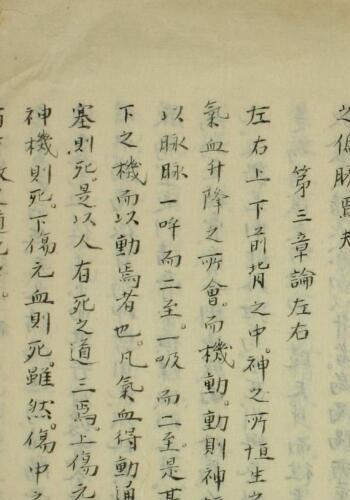 之傷脉焉夫
第三章論左右
左右上下前背之中。神之所恒生
氣血升降之所會。而機動。動則神
以脉脉一呼而二至。一吸而二至。是其
下之機而以動焉者也。凡氣血得動通
塞則死。是以人有死之道三焉。上傷元
神機則死。下傷元血則死。雖然。傷中之